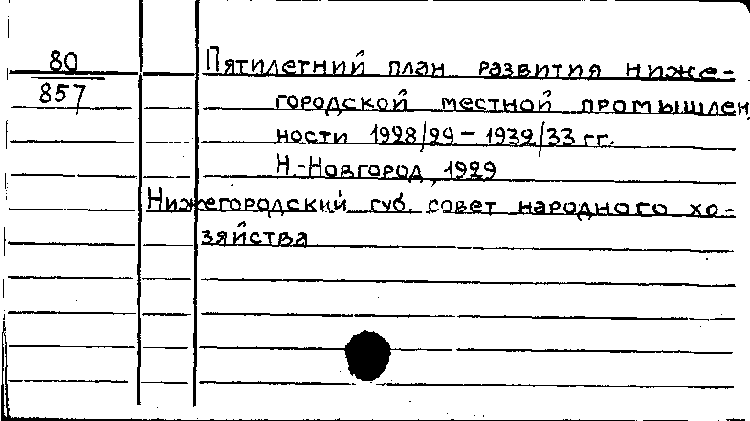 80
857
Пятилетний план развития ниже-
городской местной промышлен
ности 1928/29 - 1932/33 гг.
Н.-Новгород, 1929
Нижегородский губ. совет народного хо-
зяйства